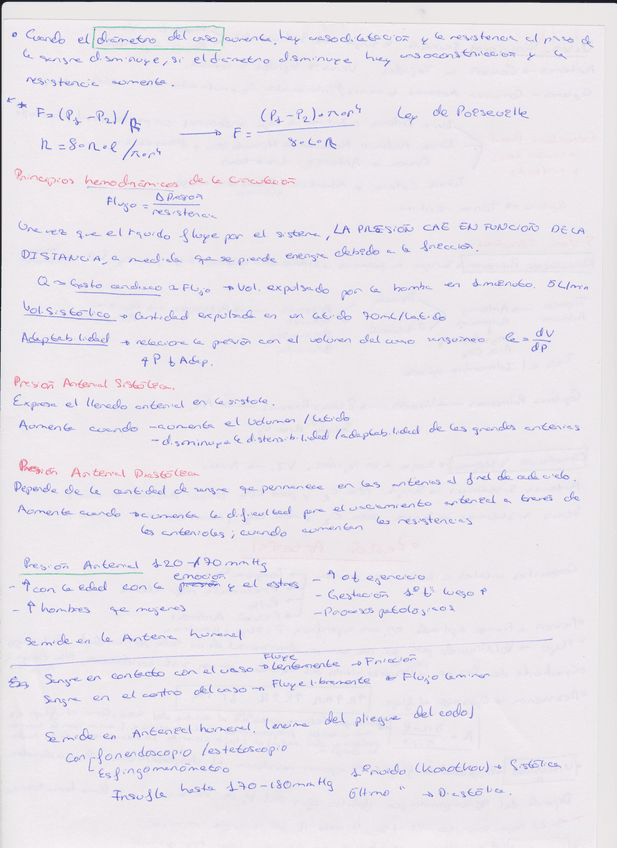 • Cuando el diámetro del vaso aumenta, hay vasodilatación y la resistencia al paso de
la sangre disminuye, si el diámetro disminuye hay vasoconstricción y la
resistencia aumenta.
F = (P1 - P2) / R → F = (P1 - P2) · π · r⁴ / 8 · L · η Ley de Poiseuille
R = 8 · η · l / π · r⁴
Principios hemodinámicos de la circulación
Flujo = ΔPresión / resistencia
Una vez que el líquido fluye por el sistema, LA PRESIÓN CAE EN FUNCIÓN DE LA
DISTANCIA, a medida que se pierde energía debido a la fricción.
Q → Gasto cardiaco a Flujo → Vol. expulsado por la bomba en 1 minuto. 5L/min
Vol Sistólico → Cantidad expulsada en un latido 70mL/latido
Adaptabilidad → relaciona la presión con el volumen del vaso sanguíneo = dV/dP
↑P ↓ Adap.
Presión Arterial Sistólica.
Expresa el llenado arterial en la sístole.
Aumenta cuando - aumenta el volumen/latido
- disminuye la distensibilidad/adaptabilidad de las grandes arterias
Presión Arterial Diastólica
Depende de la cantidad de sangre que permanece en las arterias al final de cada ciclo.
Aumenta cuando → aumenta la dificultad para el vaciamiento arterial a través de
las arteriolas; cuando aumentan las resistencias
Presión Arterial 120/70 mmHg
- ↑ con la edad con la emoción y el estrés - ↑ ejercicio
- Gestación 1º ↓ luego ↑
- ↑ hombres que mujeres - Procesos patológicos
Se mide en la Arteria humeral
Sangre en contacto con el vaso → Fluye lentamente → Fricción
Sangre en el centro del vaso → Fluye libremente → Flujo laminar
Se mide en Arterial humeral. (encima del pliegue del codo)
Con - fonendoscopio/estetoscopio
Esfingomanómetro 1º ruido (Korotkov) → Sistólica
Insufla hasta 170-180mmHg Último " → Diastólica.